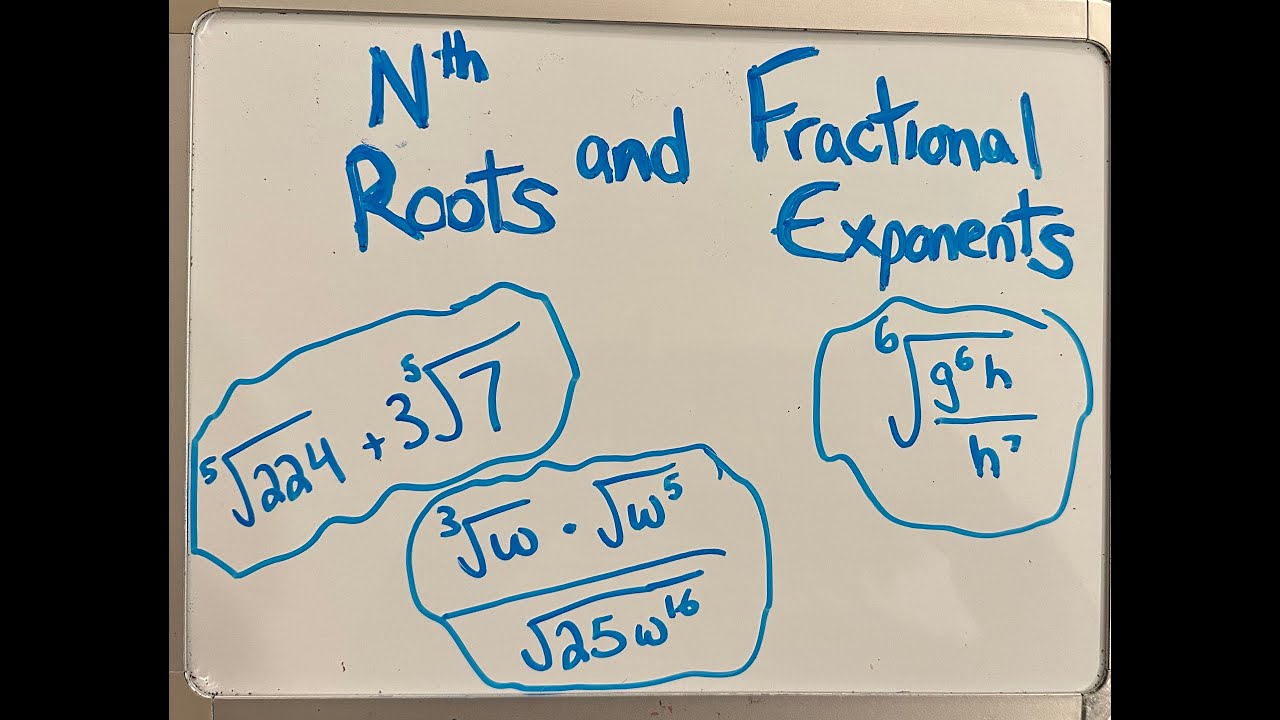 Nth
Roots and Fractional
Exponents
⁵√224 + 3 ⁵√7
³√w · √w⁵
√25w¹⁶
⁶√
g⁶h
h⁷